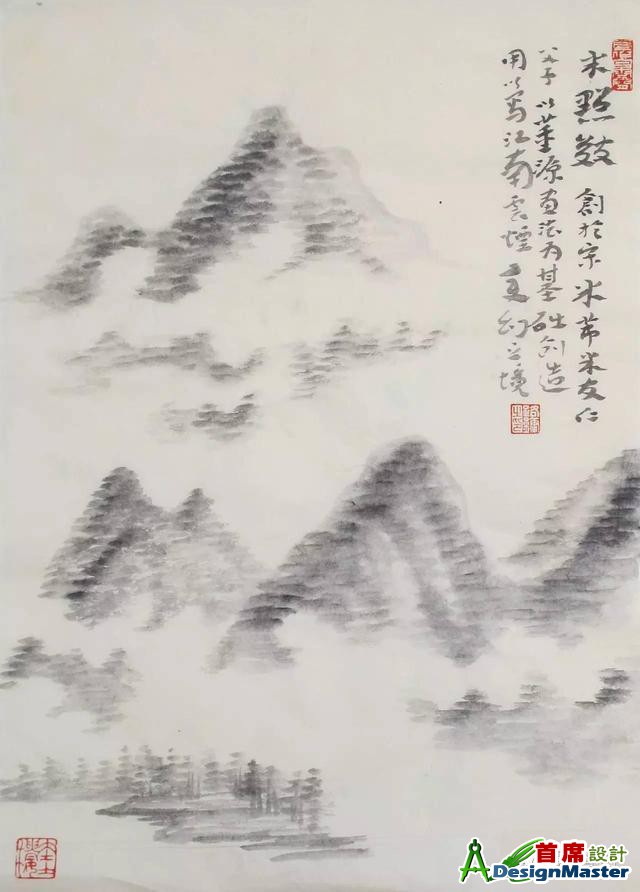 米點皴 創於宋米芾米友仁
父子以董源画法为基础创造
用以写江南雲煙变幻之境
首席設計
DesignMaster